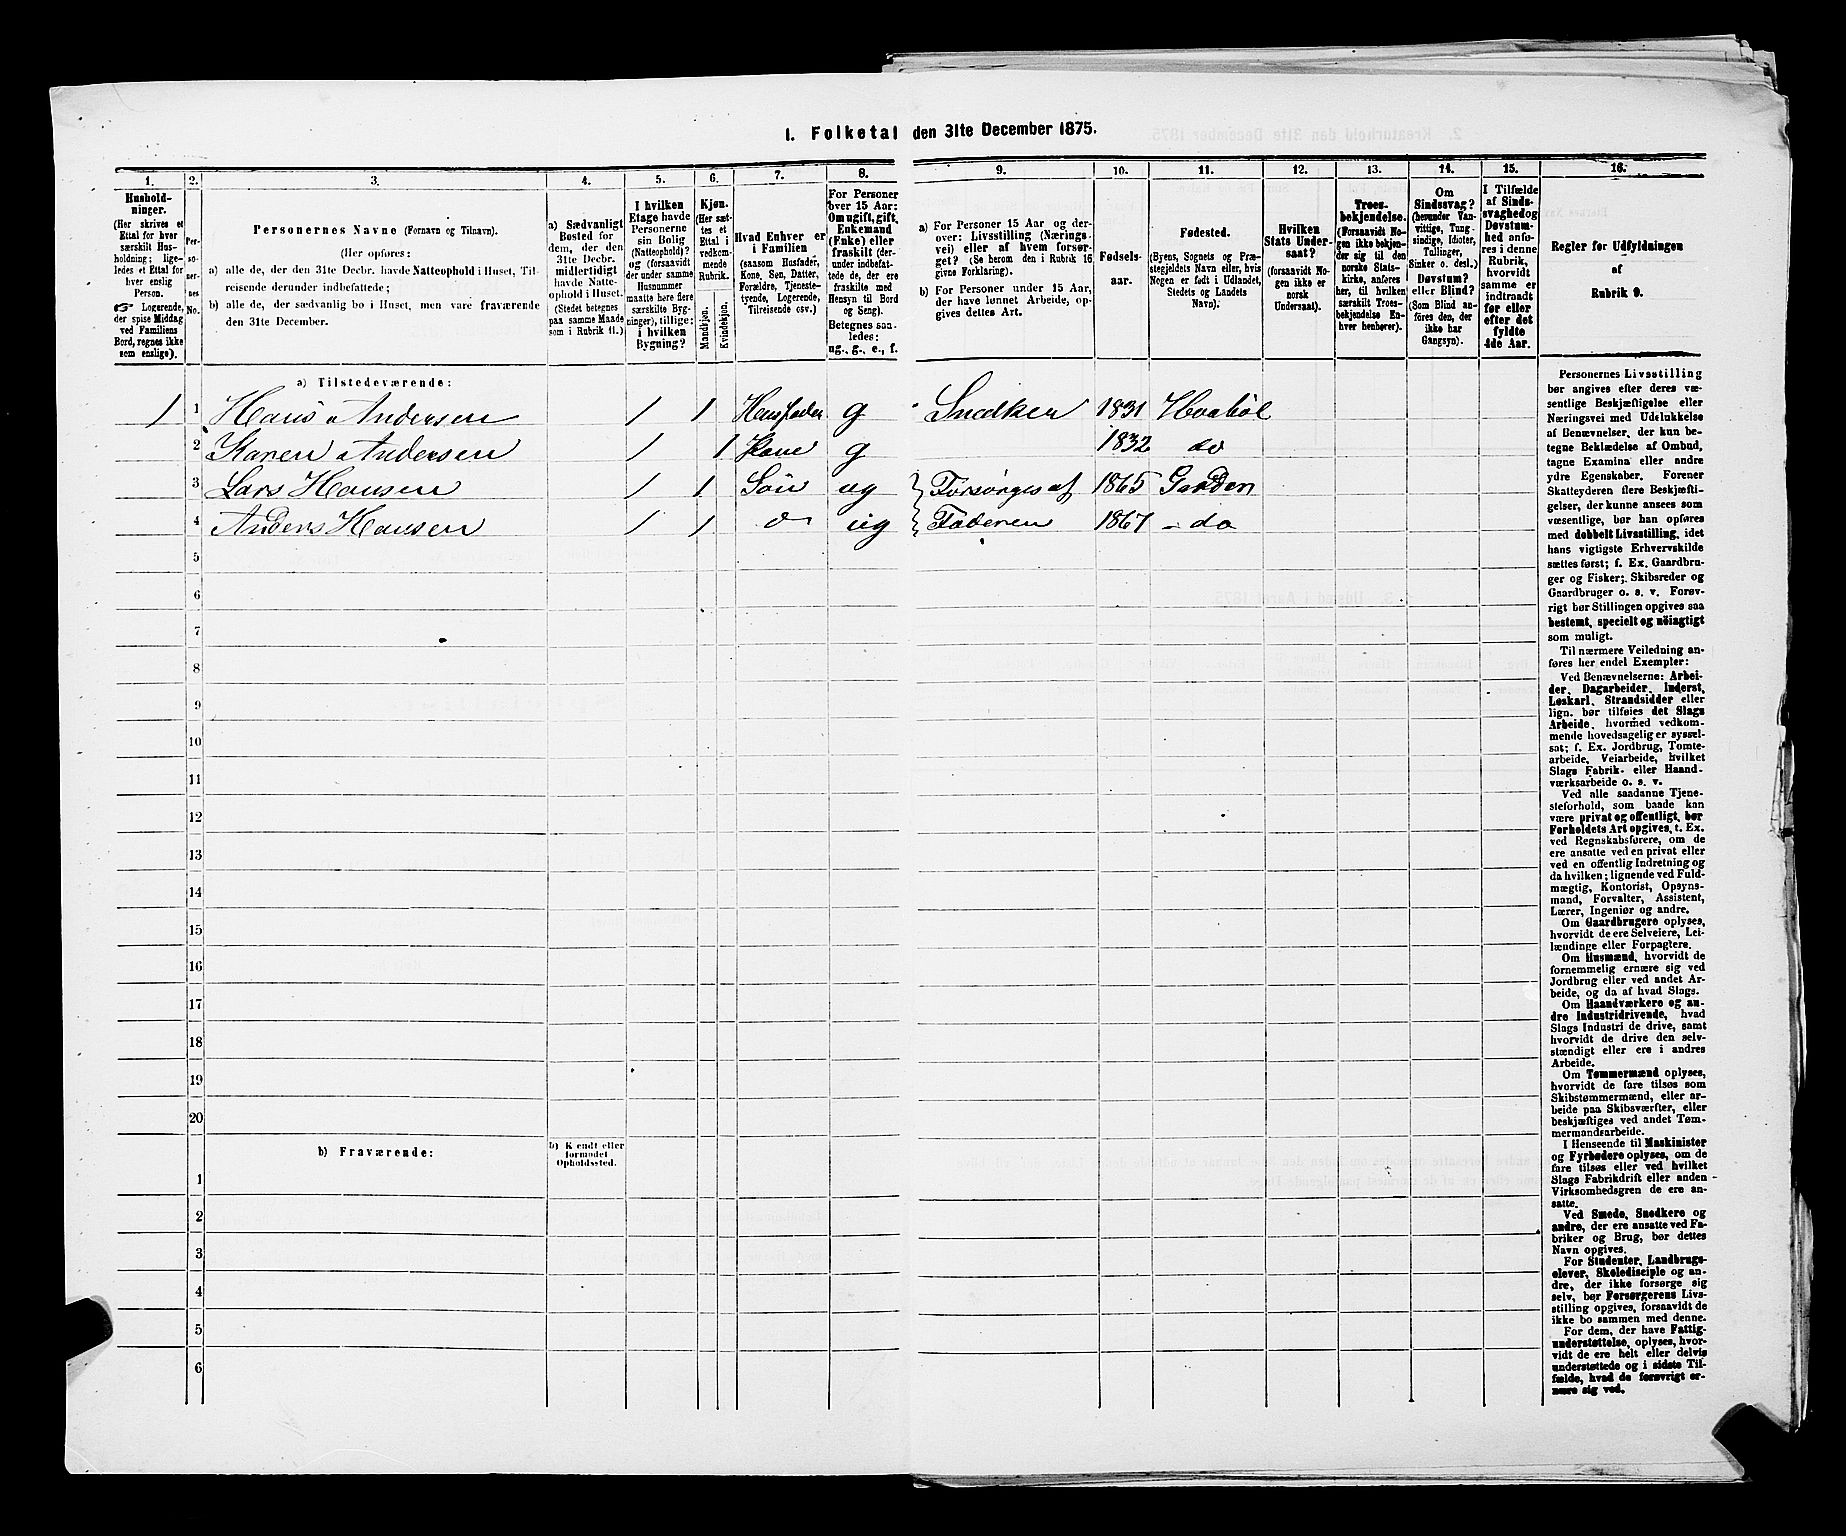 1. Folketal den 31te December 1875.
1. 2. 3. 4. 5. 6. 7. 8. 9. 10. 11. 12. 13. 14. 15. 16.
Husholdninger.
(Her skrives et
Ettal for hver
særskilt Husholdning;
ligeledes et Ettal for
hver enslig
Person.
Logerende,
der spise Middag
ved Familiens
Bord, regnes ikke
som enslige).
Personernes No.
Personernes Navne (Fornavn og Tilnavn).
(Her opføres:
a) alle de, der den 31te Decbr. havde Natteophold i Huset, Tilreisende
derunder indbefattede;
b) alle de, der sædvanlig bo i Huset, men vare fraværende
den 31te December.
a) Sædvanligt
Bosted for
dem, der den
31te Decbr.
midlertidigt
havde Natteophold
i Huset.
(Stedet betegnes
paa samme Maade
som i Rubrik 11.)
I hvilken
Etage havde
Personerne
sin Bolig
(Natteophold)?
og (forsaavidt
der under samme
Husnummer
maatte høre flere
særskilte Bygninger),
tillige:
i hvilken
Bygning?
Kjøn.
(Her sættes
et
Ettal i
vedkommende
Rubrik.
Mandkjøn.
Kvindekjøn.
Hvad Enhver er
i Familien
(saasom Husfader,
Kone, Søn, Datter,
Forældre, Tjenestetyende,
Logerende,
Tilreisende osv.)
For Personer
over 15 Aar:
Om ugift, gift,
Enkemand
(Enke) eller
fraskilt (derunder
indbefattede
de, der ere
fraskilte med
Hensyn til Bord
og Seng).
Betegnes saaledes:
ug., g., e., f.
a) For Personer 15 Aar og derover:
Livsstilling (Næringsvei)
eller af hvem forsørget?
(Se herom den i Rubrik 16
givne Forklaring).
b) For Personer under 15 Aar,
der have lønnet Arbeide, opgives
dettes Art.
Fødselsaar.
Fødested.
(Byens, Sognets og Præstegjeldets
Navn eller, hvis
Nogen er født i Udlandet,
Stedets og Landets
Navn).
Hvilken
Stats Undersaat?
(forsaavidt Nogen
ikke er
norsk
Undersaat).
Troesbekjendelse.
(Forsaavidt Nogen
ikke bekjender
sig til den
norske Statskirke,
anføres
her, til hvilken
særskilt Troesbekjendelse
Enhver
henhører).
Om
Sindssvag?
(herunder Vanvittige,
Tungsindige,
Idioter,
Tullinger,
Sinker o. desl.)
Døvstum?
eller Blind?
(Som Blind anføres
den, der
ikke har
Gangsyn).
I Tilfælde
af Sindssvaghed
og
Døvstumhed
anføres
i denne
Rubrik,
hvorvidt
samme er
indtraadt
før eller
efter det
fyldte
4de Aar.
Regler for Udfyldningen
af
Rubrik 9.
a) Tilstedeværende:
1 1 Hans Andersen 1 1 Husfader g Snedker 1831 Hvaløe
2 Karen Andersen 1 1 Kone g 1832 do
3 Lars Hansen 1 1 Søn ug Forsørges af 1865 Garden
4 Anders Hansen 1 1 ug Faderen 1867 - do
5
6
7
8
9
10
11
12
13
14
15
16
17
18
19
20
b) Fraværende: b) Kjendt eller
formodet
Opholdssted.
1
2
3
4
5
6
Personernes Livsstilling
bør angives efter deres væsentlige
Beskjæftigelse eller
Næringsvei med Udelukkelse
af Benævnelser, der kun betegne
Beklædelse af Ombud,
tagne Examina eller andre
ydre Egenskaber. Forener
Skatteyderen flere Beskjæftigelser,
der kunne ansees som
væsentlige, bør han opføres
med dobbelt Livsstilling, idet
hans vigtigste Erhvervskilde
sættes først; f. Ex. Gaardbruger
og Fisker; Skibsreder og
Gaardbruger o. s. v. Forøvrigt
bør Stillingen opgives saa
bestemt, specielt og nøiagtigt
som muligt.
Til nærmere Veiledning anføres
her endel Exempler:
Ved Benævnelserne: Arbeider,
Dagarbeider, Inderst,
Løskarl, Strandsidder eller
lign. bør tilføies det Slags
Arbeide, hvormed vedkommende
hovedsagelig er sysselsat;
f. Ex. Jordbrug, Tomtearbeide,
Veiarbeide, hvilket
Slags Fabrik- eller Haandværksarbeide
o. s. v.
Ved alle saadanne Tjenesteforhold,
som baade kan
være privat og offentligt, bør
Forholdets Art opgives, t. Ex.
ved Regnskabsførere, om de
ere ansatte ved en privat eller
ved en offentlig Indretning og
da hvilken; lignende ved Fuldmægtig,
Kontorist, Opsynsmand,
Forvalter, Assistent,
Lærer, Ingeniør og andre.
Om Gaardbrugere oplyses,
hvorvidt de ere Selveiere, Leilændinge
eller Forpagtere.
Om Husmænd, hvorvidt de
fornemmelig ernære sig ved
Jordbrug eller ved andet Arbeide,
og da af hvad Slags.
Om Haandværkere og andre
Industridrivende, hvad
Slags Industri de drive, samt
hvorvidt de drive den selvstændigt
eller ere i andres
Arbeide.
Om Tømmermænd oplyses,
hvorvidt de fare tilsøs som
Skibstømmermænd, eller arbeide
paa Skibsværfter, eller
beskjæftiges ved andet Tømmermandsarbeide.
I Henseende til Maskinister
og Fyrbødere oplyses, om de
fare tilsøs eller ved hvilket
Slags Fabrikdrift eller anden
Virksomhedsgren de ere ansatte.
Ved Smede, Snedkere og
andre, der ere ansatte ved Fabriker
og Brug, bør dettes
Navn opgives.
For Studenter, Landbrugselever,
Skoledisciple og andre,
der ikke forsørge sig
selv, bør Forsørgerens Livsstilling
opgives, forsaavidt de
ikke bo sammen med denne.
For dem, der have Fattigunderstøttelse,
oplyses, hvorvidt
de ere helt eller delvis
understøttede og i sidste Tilfælde,
hvad de forøvrigt ernære
sig ved.